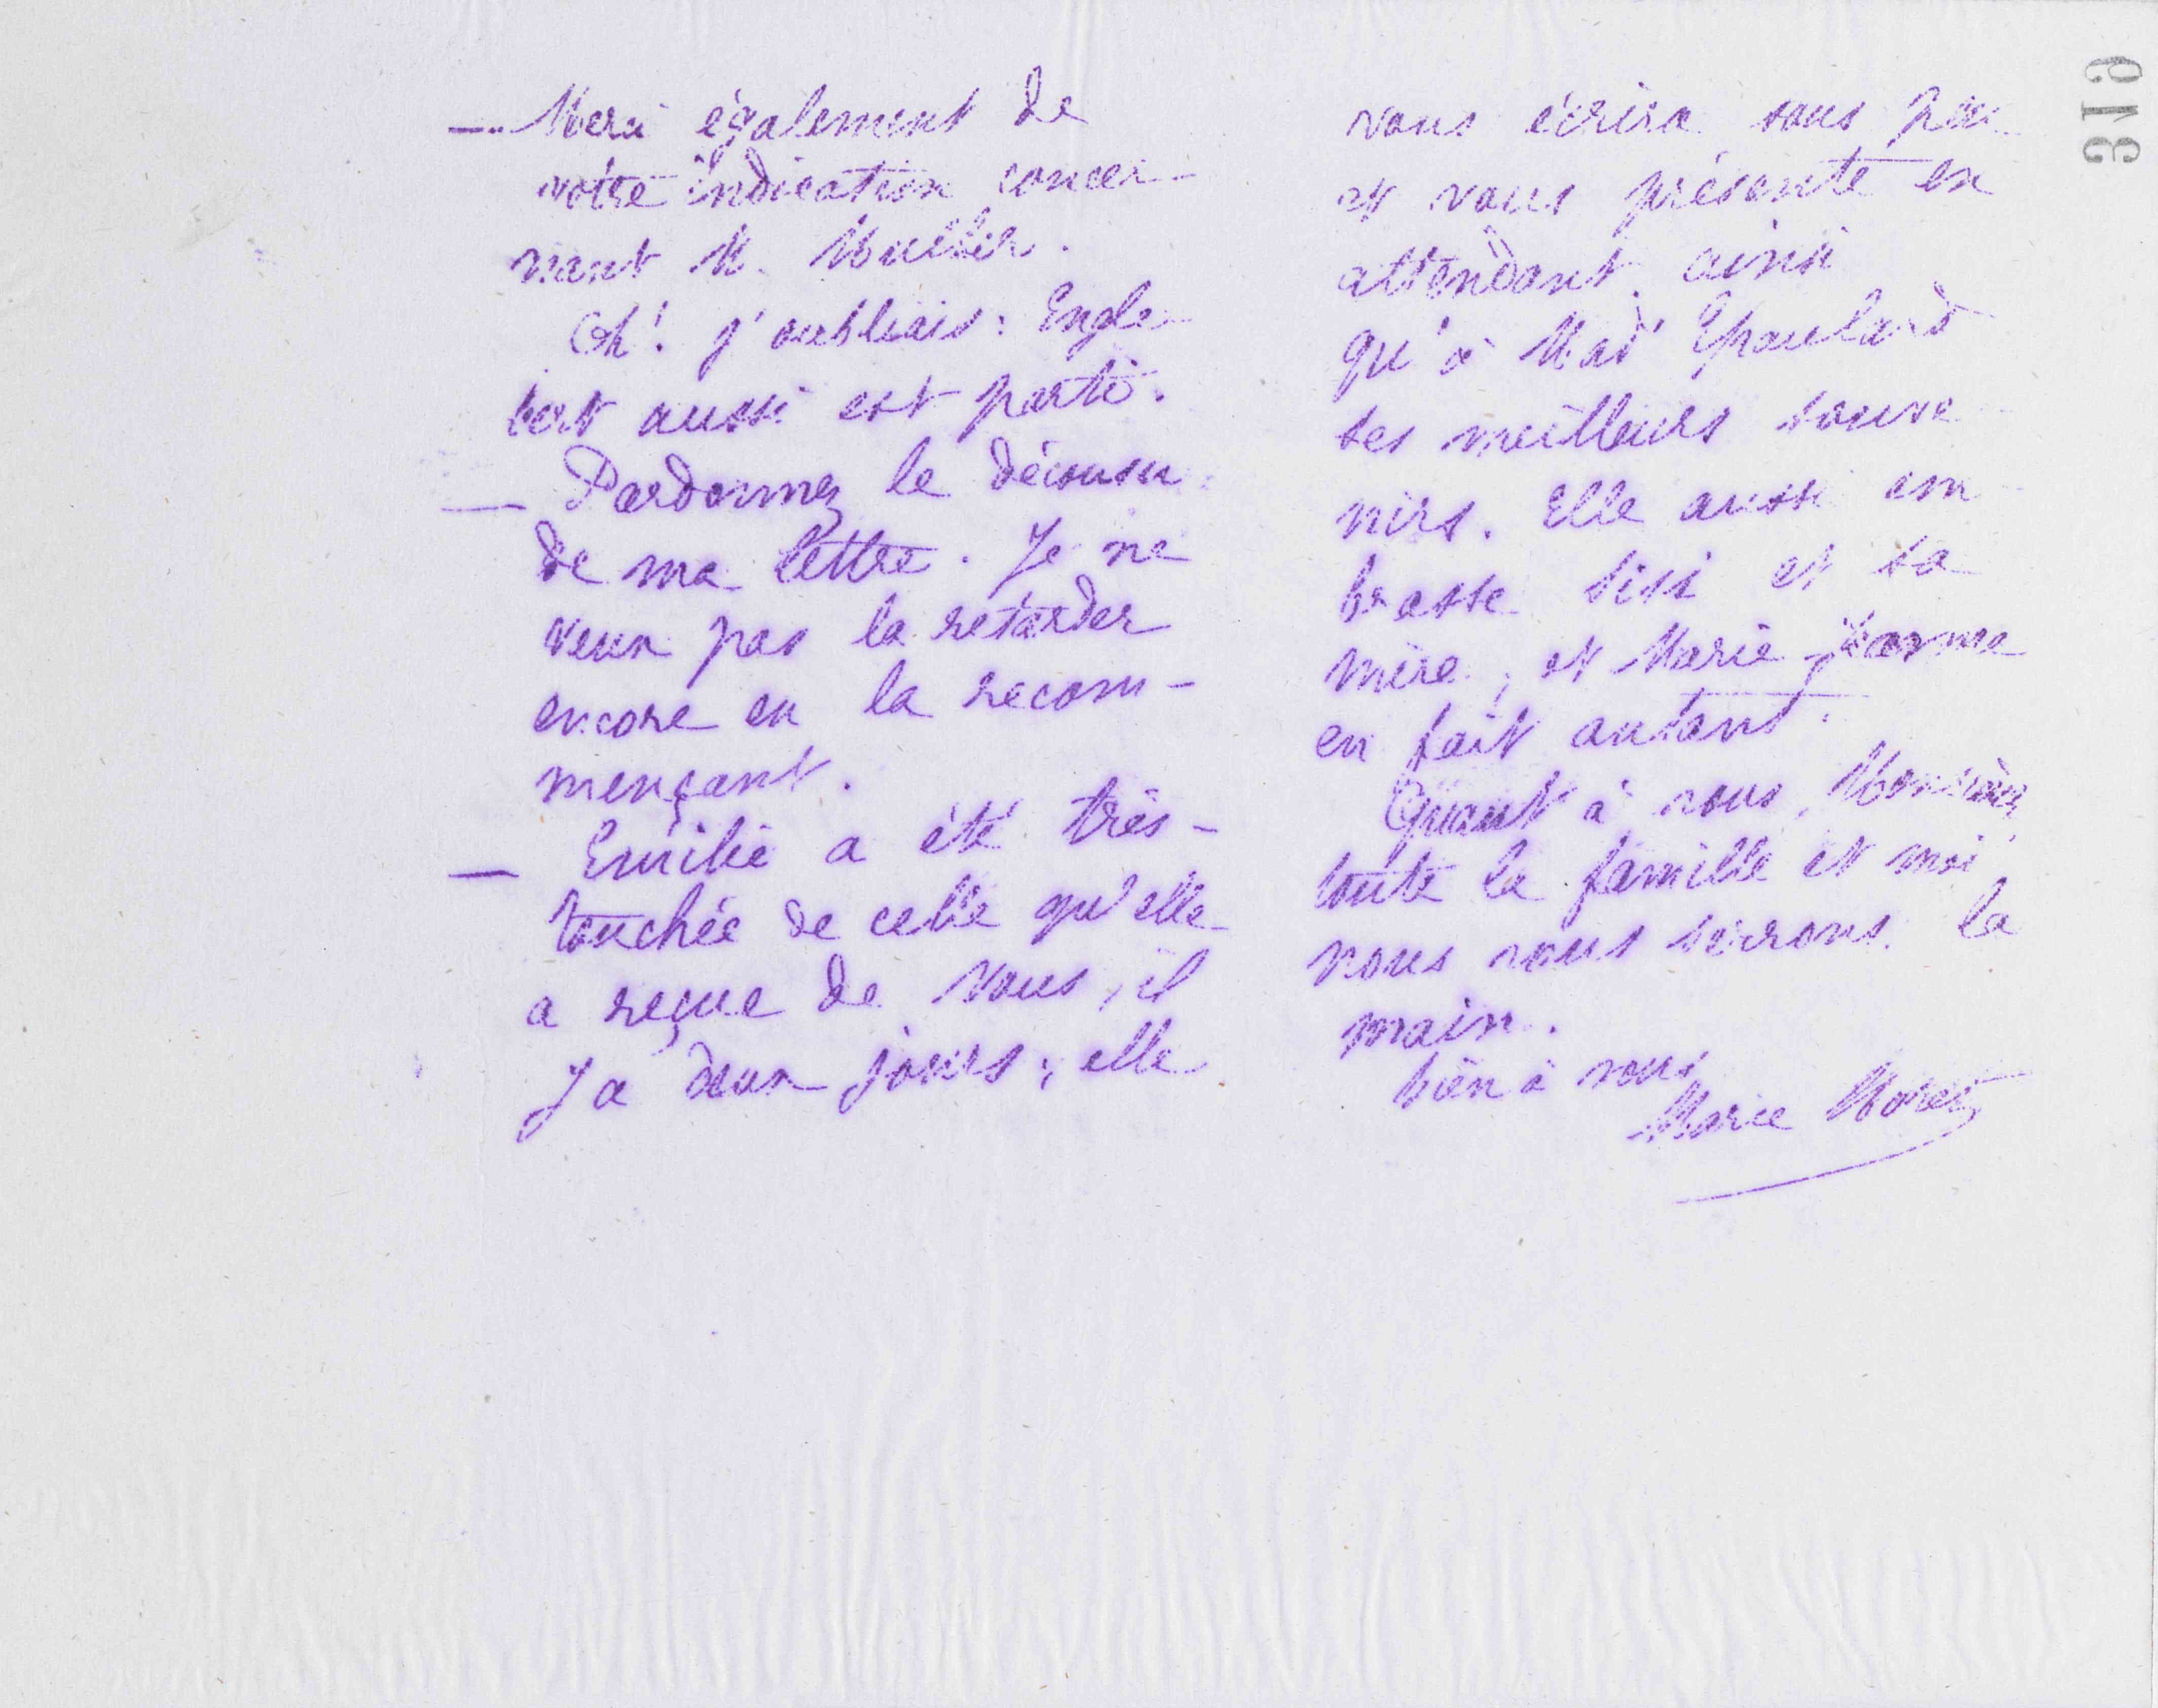 — Merci également de
votre indication concer-
nant M. Muller.
Oh! j'oubliais: Engle-
bert aussi est parti.
— Pardonnez le décousu
de ma lettre. Je ne
veux pas la retarder
encore en la recom-
mençant.
— Emilie a été très-
touchée de celle qu'elle
a reçue de vous, il
y a deux jours; elle
vous écrira sous peu
et vous présente en
attendant ainsi
qu'à Mad. Epaulard
ses meilleurs souve-
nirs. Elle aussi em-
brasse Sisi et sa
mère, et Marie-Jeanne
en fait autant.
Quant à nous, Monsieur,
toute la famille et moi
nous vous serrons la
main.
bien à vous
Marie Moret
316